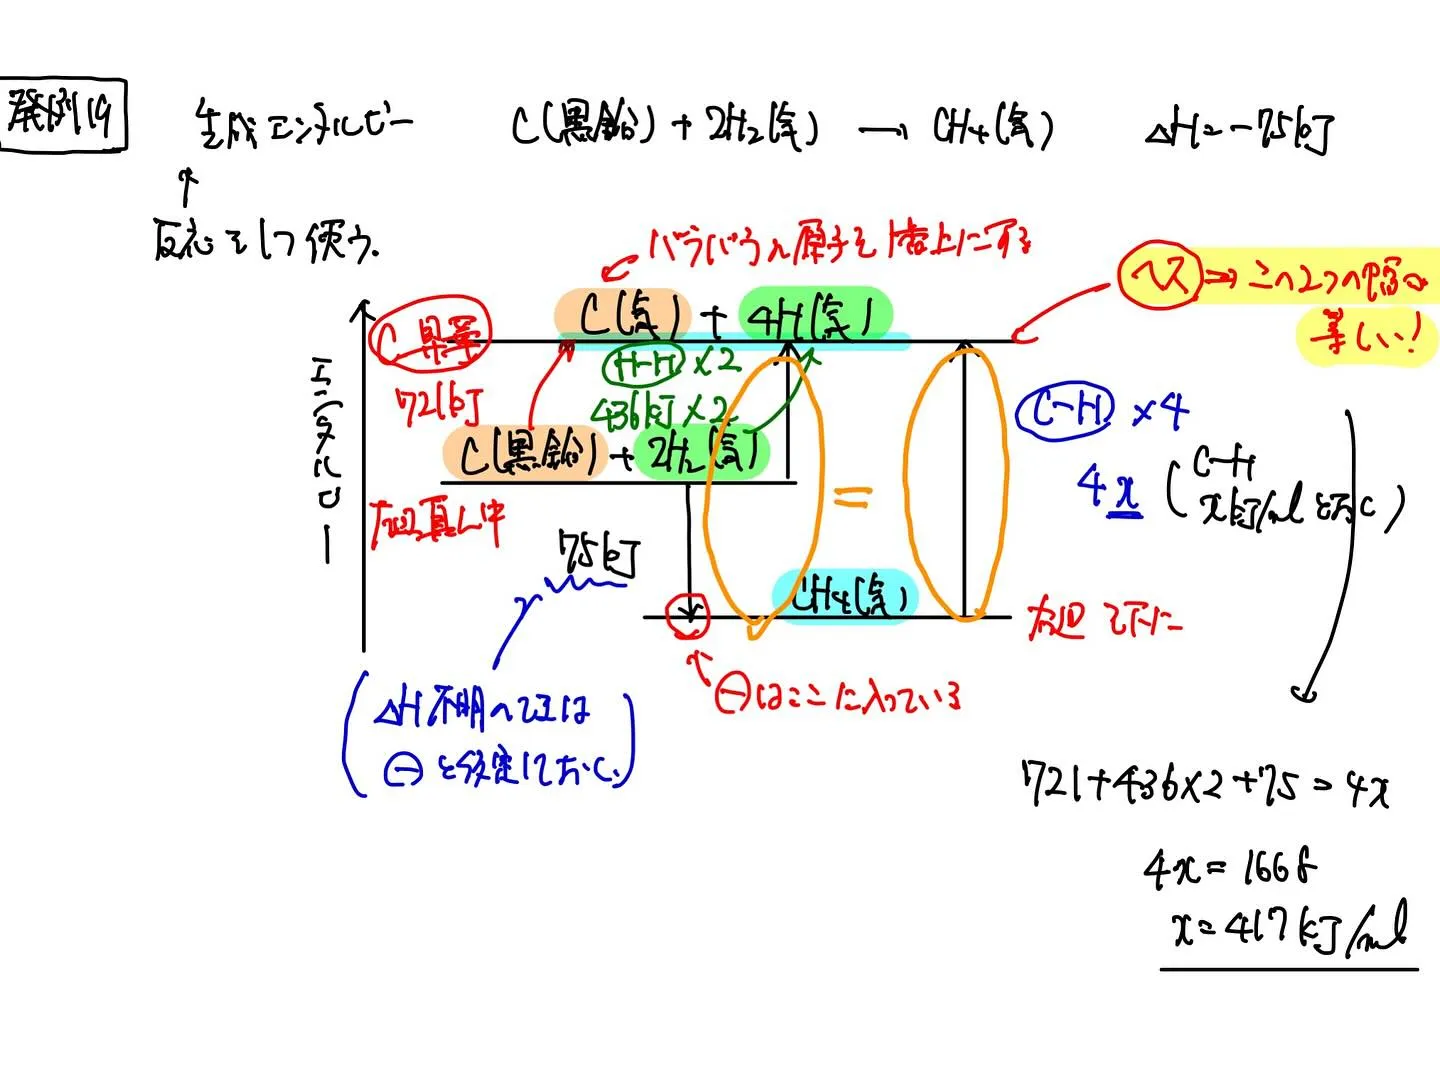 発例19
生成エンタルピー C(黒鉛)+2H₂(気) → CH₄(気) ΔH=-75kJ
↑
反応として使う.
バラバラの原子を1番上にする
ヘス ⇒ この2つの幅が
等しい!
C(気) + 4H(気)
C 昇華
721kJ
H-H ×2
436kJ×2
C(黒鉛)+2H₂(気)
エンタルピー
左辺真ん中
75kJ
=
C-H ×4
4x (C-H
x kJ/molとおく)
CH₄(気)
右辺を下に
⊖はここに入っている
(ΔH不明のときは
⊖と仮定しておく.)
721+436×2+75=4x
4x=1668
x=417kJ/mol